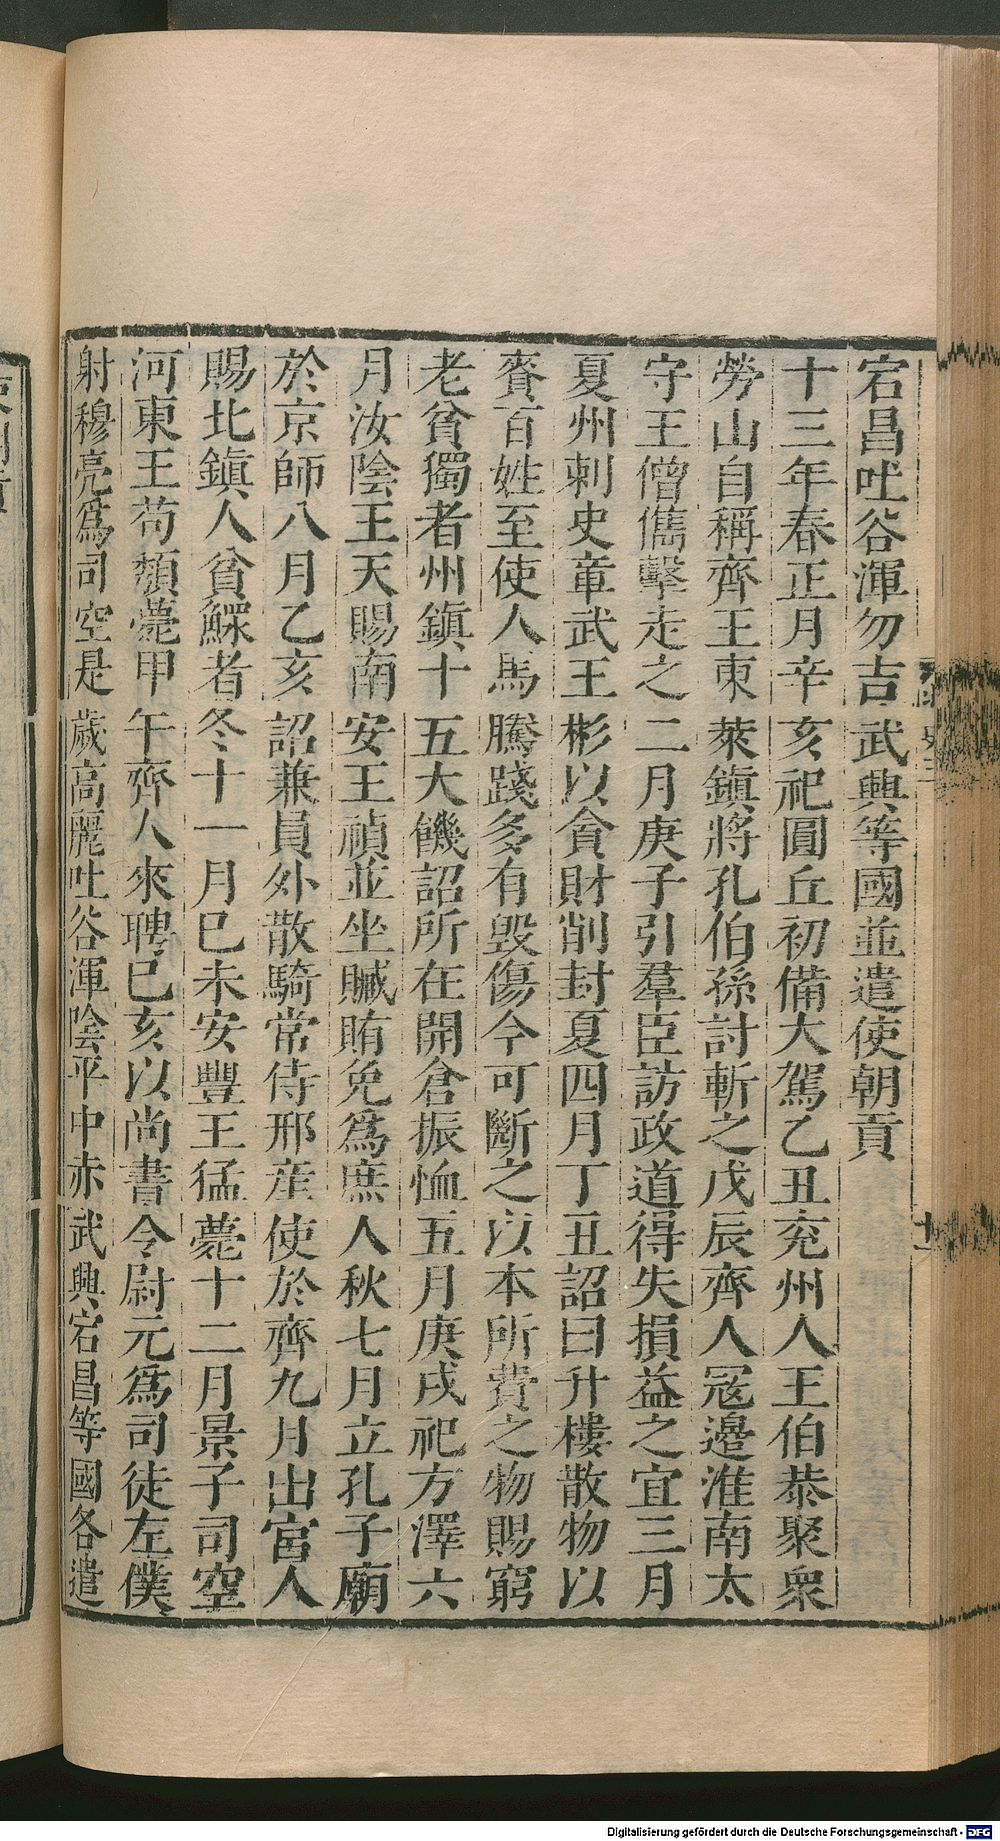 宕昌吐谷渾勿吉武興等國並遣使朝貢
十三年春正月辛亥祀圓丘初備大駕乙丑兖州人王伯恭聚衆
勞山自稱齊王東萊鎭將孔伯孫討斬之戊辰齊人冦邊淮南太
守王僧儁擊走之二月庚子引羣臣訪政道得失損益之宜三月
夏州刺史章武王彬以貪財削封夏四月丁丑詔曰升樓散物以
賚百姓至使人馬騰踐多有毀傷今可斷之以本所費之物賜窮
老貧獨者州鎭十五大饑詔所在開倉振恤五月庚戌祀方澤六
月汝陰王天賜南安王禎並坐贓賄免爲庶人秋七月立孔子廟
於京師八月乙亥詔兼員外散騎常侍邢産使於齊九月出宮人
賜北鎭人貧鰥者冬十一月巳未安豐王猛薨十二月景子司空
河東王苟頹薨甲午齊人來聘巳亥以尚書令尉元爲司徒左僕
射穆亮爲司空是歲高麗吐谷渾陰平中赤武興宕昌等國各遣
Digitalisierung gefördert durch die Deutsche Forschungsgemeinschaft - DFG